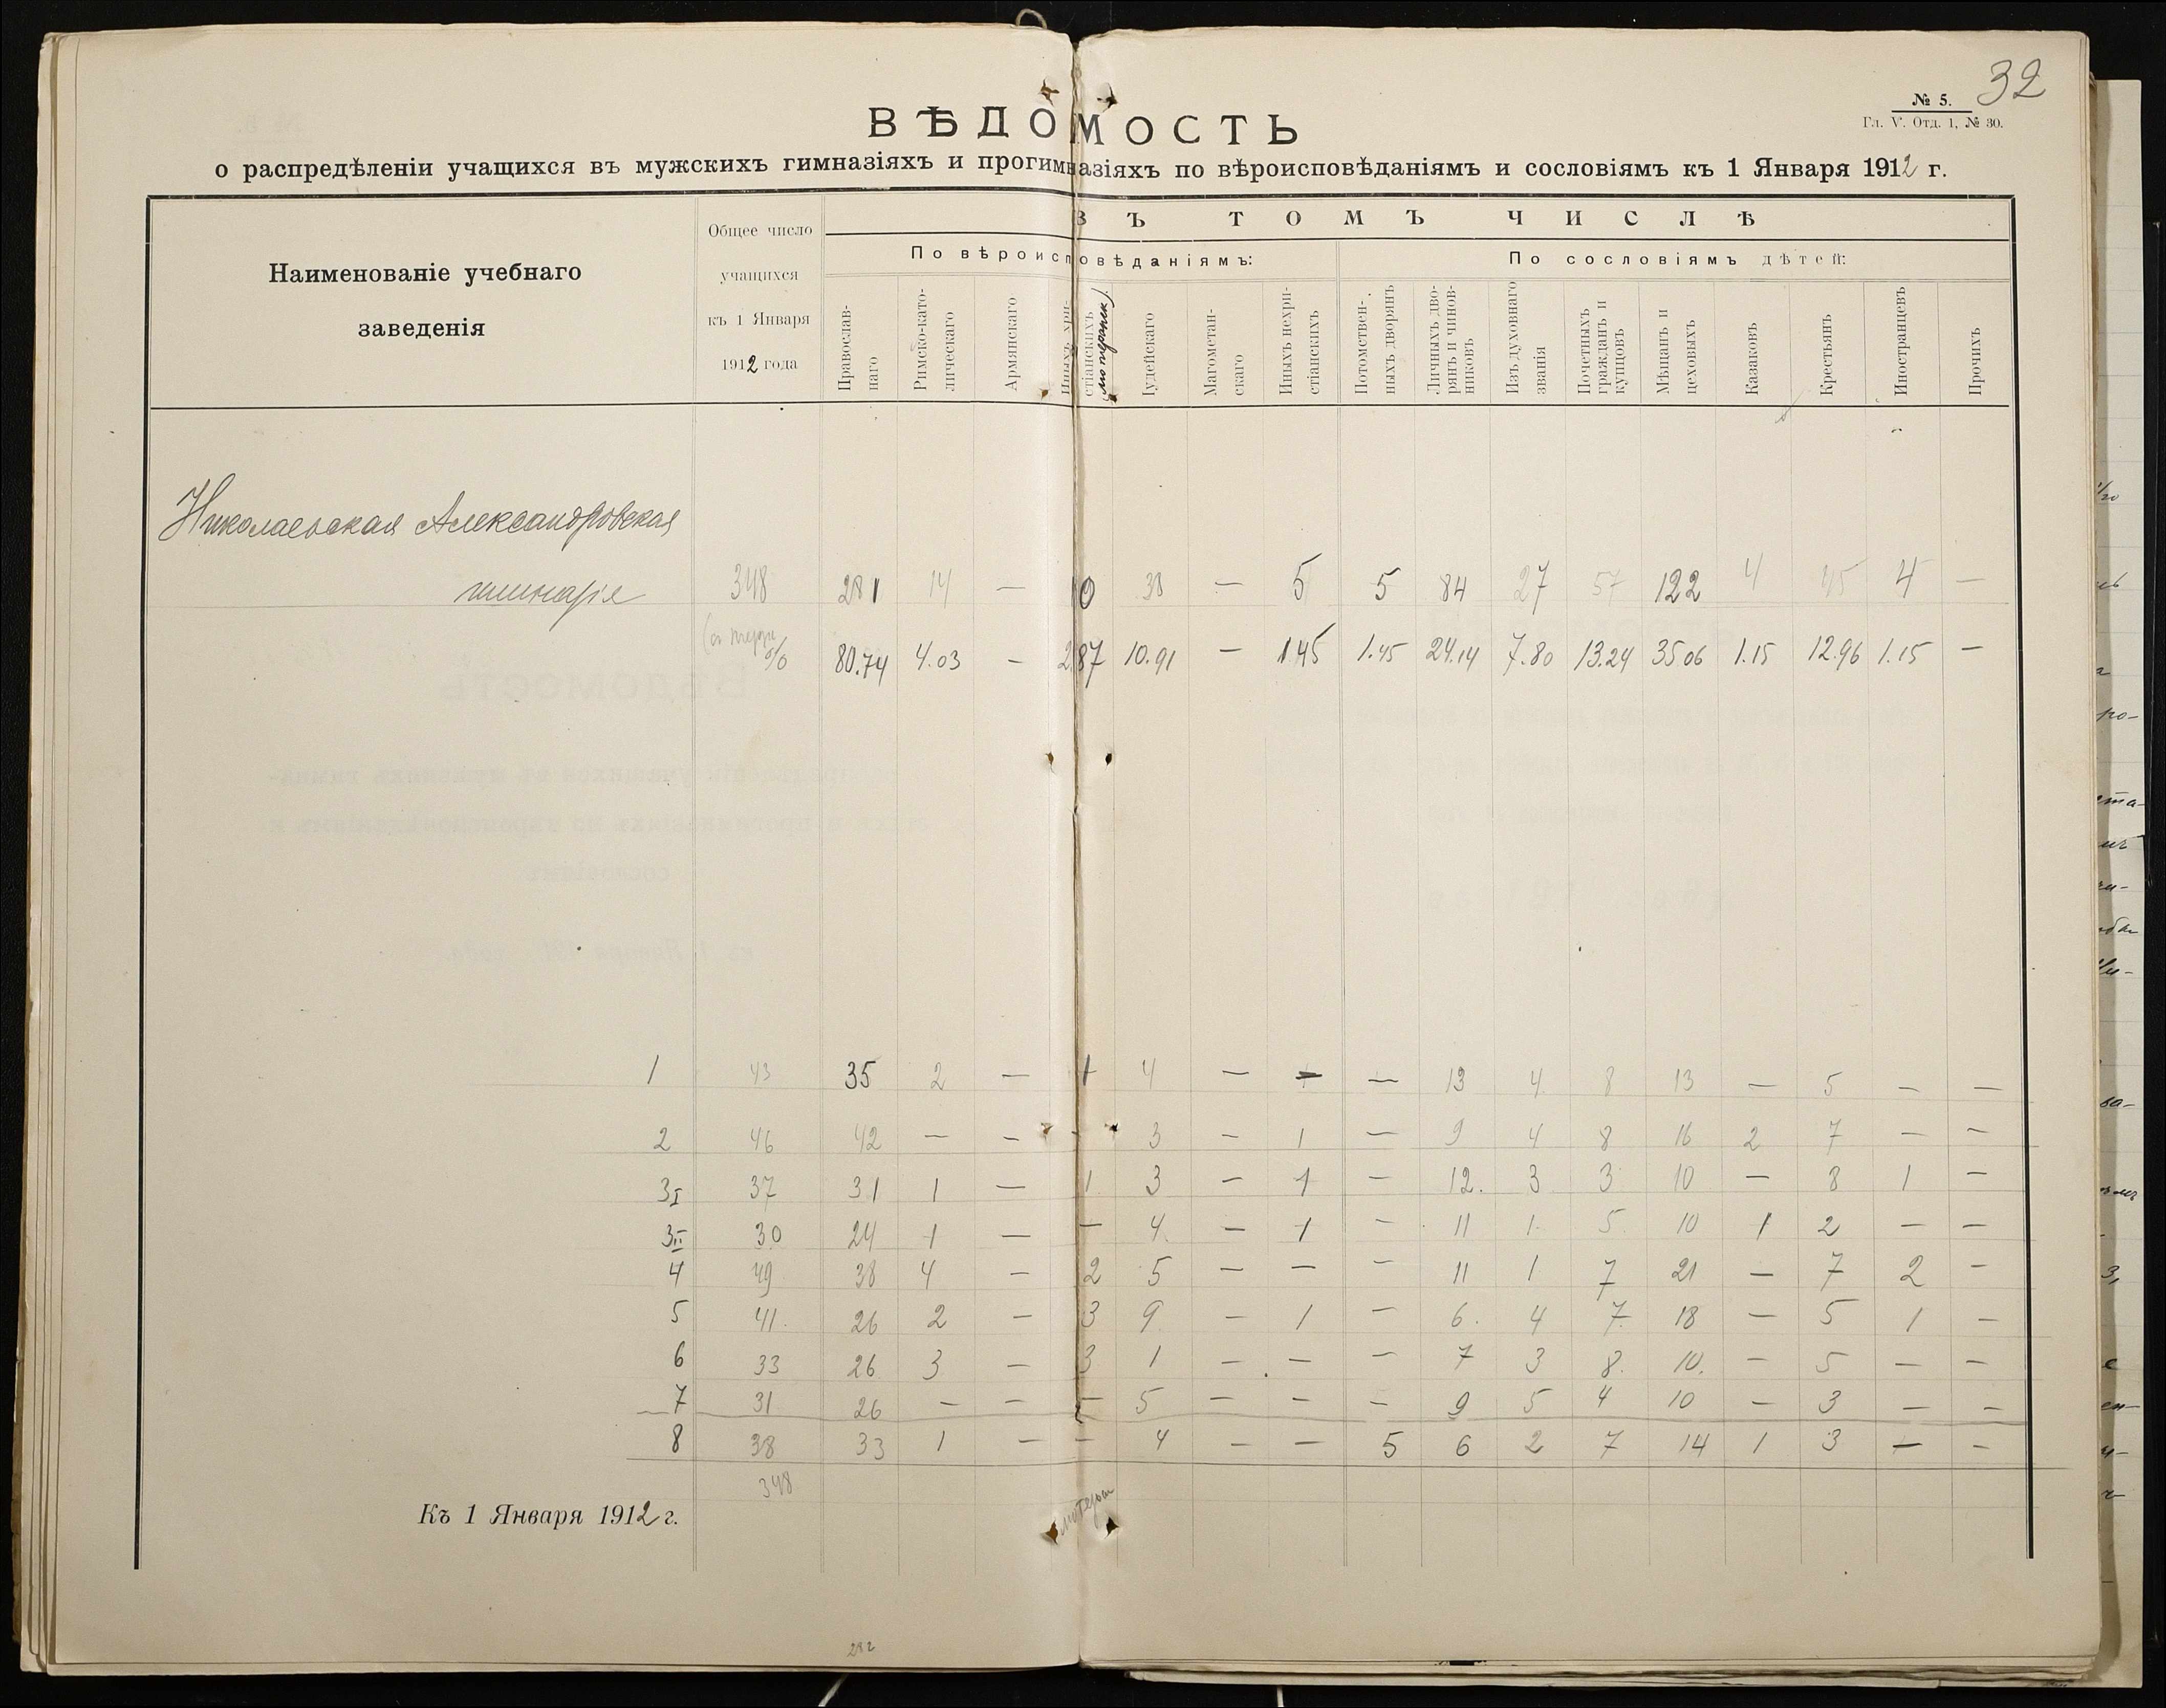 32
№ 5.
Гл. V. Отд. 1, № 30.
ВѢДОМОСТЬ
о распредѣленіи учащихся въ мужскихъ гимназіяхъ и прогимназіяхъ по вѣроисповѣданіямъ и сословіямъ къ 1 Января 1912 г.
Наименованіе учебнаго
заведенія
Общее число
учащихся
къ 1 Января
1912 года
ВЪ ТОМЪ ЧИСЛѢ
По вѣроисповѣданіямъ:
По сословіямъ дѣтей:
Православ-
наго
Римско-като-
лическаго
Армянскаго
Иныхъ хри-
стіанскихъ
Іудейскаго
Магометан-
скаго
Иныхъ нехри-
стіанскихъ
Потомствен-
ныхъ дворянъ
Личныхъ дво-
рянъ и чинов-
никовъ
Изъ духовнаго
званія
Почетныхъ
гражданъ и
купцовъ
Мѣщанъ и
цеховыхъ
Казаковъ
Крестьянъ
Иностранцевъ
Прочихъ
Николаевская Александровская
гимназія 348 281 14 — 10 38 — 5 5 84 27 57 122 4 45 4 —
% 80.74 4.03 — 2.87 10.91 — 1.45 1.45 24.14 7.80 13.24 35 06 1.15 12.96 1.15 —
1 43 35 2 — 1 4 — — — 13 4 8 13 — 5 — —
2 46 42 — — - 3 — 1 — 9 4 8 16 2 7 — —
3I 37 31 1 — 1 3 — 1 — 12. 3 3 10 — 8 1 —
3II 30 24 1 — — 4 — 1 — 11 1 5 10 1 2 — —
4 49 38 4 — 2 5 — — — 11 1 7 21 — 7 2 —
5 41 26 2 — 3 9 — 1 — 6. 4 7 18 — 5 1 —
6 33 26 3 — 3 1 — — — 7 3 8. 10. — 5 — —
7 31 26 — — — 5 — — — 9 5 4 10 — 3 — —
8 38 33 1 — — 4 — — 5 6 2 7 14 1 3 — —
348
Къ 1 Января 1912 г.
282